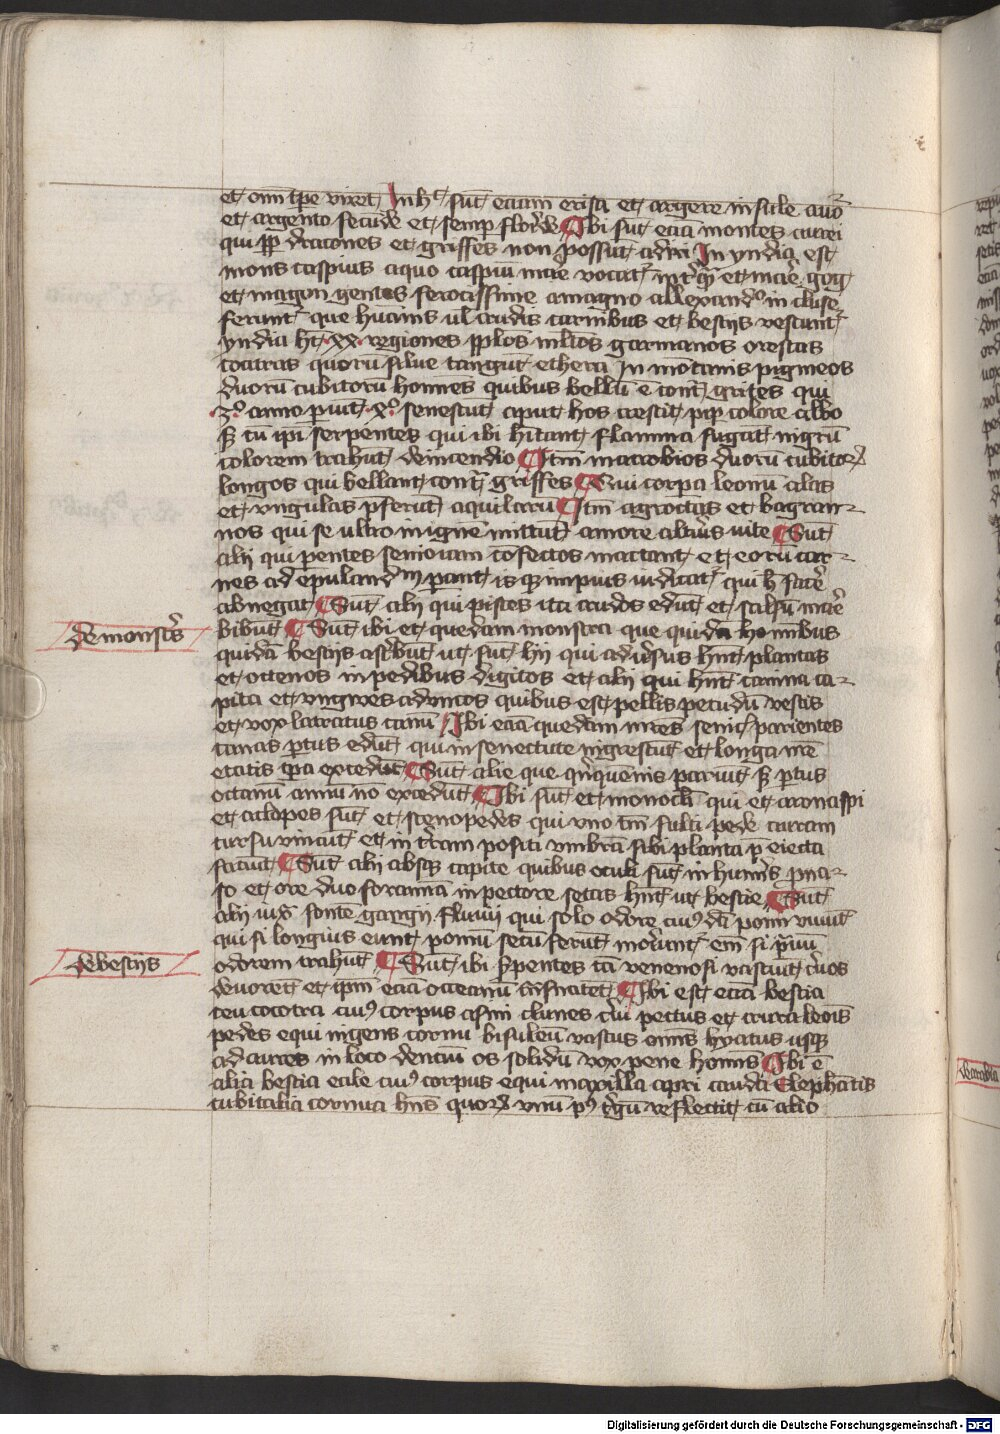 et om̄i tp̄e viret In hͨ sūt eciam crisa et argere insule auͦ
et argento fecūde et semp floͬde Ibi sūt eciā montes aurei
qui pp̄ dracones et griffes non possūt adiri In yndia est
mons caspius a quo caspiū mare vocatͬ int̄ qͣ et mare gog
et magog gentes ferocissime a magno allexandͦ incluse
ferunt que humanis ul̄ crudis carnibus et bestijs vescunt
yndia hꝫ xx regiones pplōs ml̄tos garmanos orestas
coatras quorū silue tangūt ethera In mōtanis pigmeos
duorū cubitorū homines quibus bellū ē cont grues qui
3ͦ anno pariūt xͦ senescūt apud hos crescit pip colore albo
sꝫ cū ipī serpentes qui ibi hītant flamma fugāt nigrū
colorem trahūt de incendio Itm̄ macrobios duorū cubitoꝝ
longos qui bellant contͣ griffes Qui corpa leonū alas
et vngulas pferūt aquilarū Itm̄ agroctas et bagran-
nos qui se ultro in ignē mittūt amore altius vite Sūt
alij qui pentes senio iam cōfectos mactant et eorū car-
nes ad epulandͫ parant is qꝫ impius iudicatͬ qui hͦ facͤe
abnegat Sūt alij qui pisces ita crudos edūt et salsū mare
bibūt Sūt ibi et quedam monstra que quidā hominibus
de monstͬs
quidā bestijs asc̄būt ut sūt hij qui adūsus hn̄t plantas
et octenos in pedibus digitos et alij qui hn̄t canina ca-
pita et vngwes aduncos quibus est pellis pecudū vestis
et vox latratus canū Ibi eciā quedam mr̄es semel parientes
canas ptus edūt qui in senectute nigrescūt et longa nr̄e
etatis tpa excedūt Sūt alie que qn̄quēnis pariūt sꝫ ptus
octauū annū nō excedūt Ibi sūt et monocli qui et arimaspi
et ciclopes sūt et scenopedes qui vno tm̄ fulti pede auram
cursu vincūt et in tͬram positi vmbrā sibi planta pͤ eiecta
faciūt Sūt alij absqꝫ capite quibus oculi sūt in humͬis p na-
so et ore duo foramina in pectore setas hn̄t ut bestie Sūt
alij iuxͣ fontē gangij fluuij qui solo odore cuiꝰ dā pomi viuūt
qui si longius eunt pomū secū ferūt moriunt em̄ si pͣuū
odorem trahūt Sūt ibi spentes tā venenosi vt ... cͬuos
de bestijs
deuorent et ipm eciā occeanū ... Ibi est eciā bestia
ceucocotra cuiꝰ corpus asini clunes cͬui pectus et crura leōis
pedes equi ingens cornu bisulcū vastus oris hyatus usqꝫ
ad aures in loco dentiū os solidū vox pene hominis Ibi ē
alia bestia eale cuiꝰ corpus equi maxilla apri cauda Elephātis
cubitalia cornua hn̄s quoꝝ vnū pꝰ tͬgū reflectit cū alio
de arabia
Digitalisierung gefördert durch die Deutsche Forschungsgemeinschaft - DFG